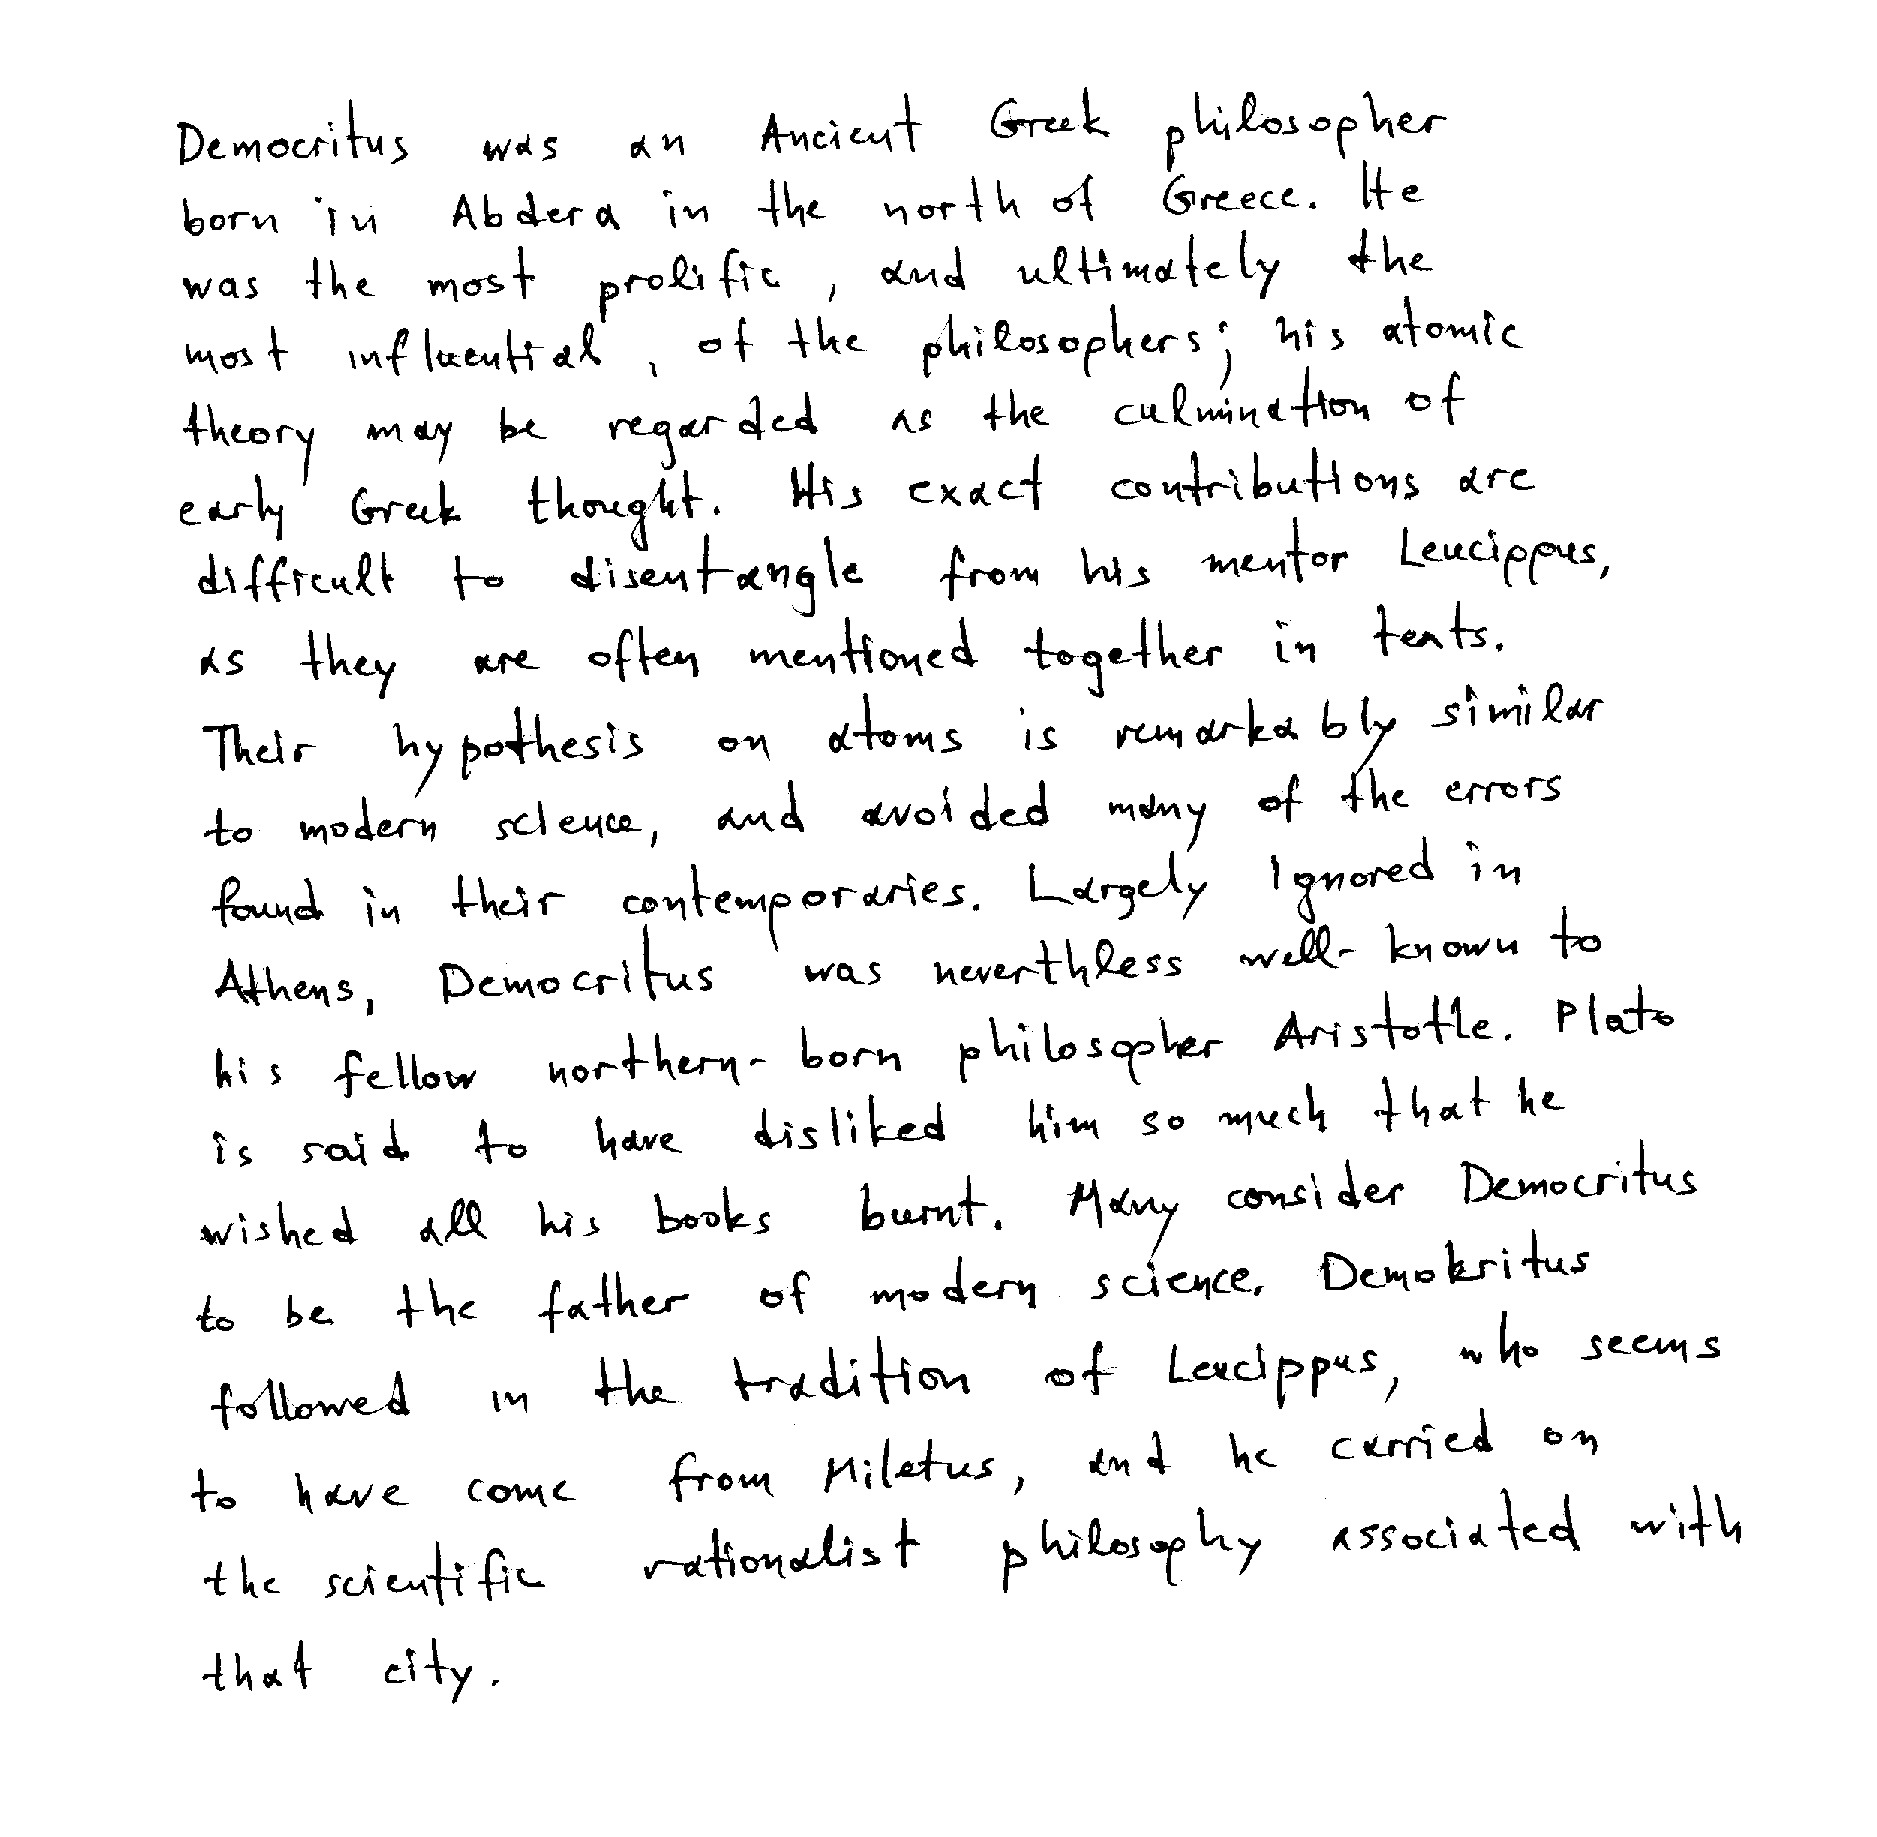 Democritus was an Ancient Greek philosopher
born in Abdera in the north of Greece. He
was the most prolific, and ultimately the
most influential, of the philosophers; his atomic
theory may be regarded as the culmination of
early Greek thought. His exact contributions are
difficult to disentangle from his mentor Leucippus,
as they are often mentioned together in texts.
Their hypothesis on atoms is remarkably similar
to modern science, and avoided many of the errors
found in their contemporaries. Largely ignored in
Athens, Democritus was neverthless well-known to
his fellow northern-born philosopher Aristotle. Plato
is said to have disliked him so much that he
wished all his books burnt. Many consider Democritus
to be the father of modern science. Demokritus
followed in the tradition of Leucippus, who seems
to have come from Miletus, and he carried on
the scientific rationalist philosophy associated with
that city.